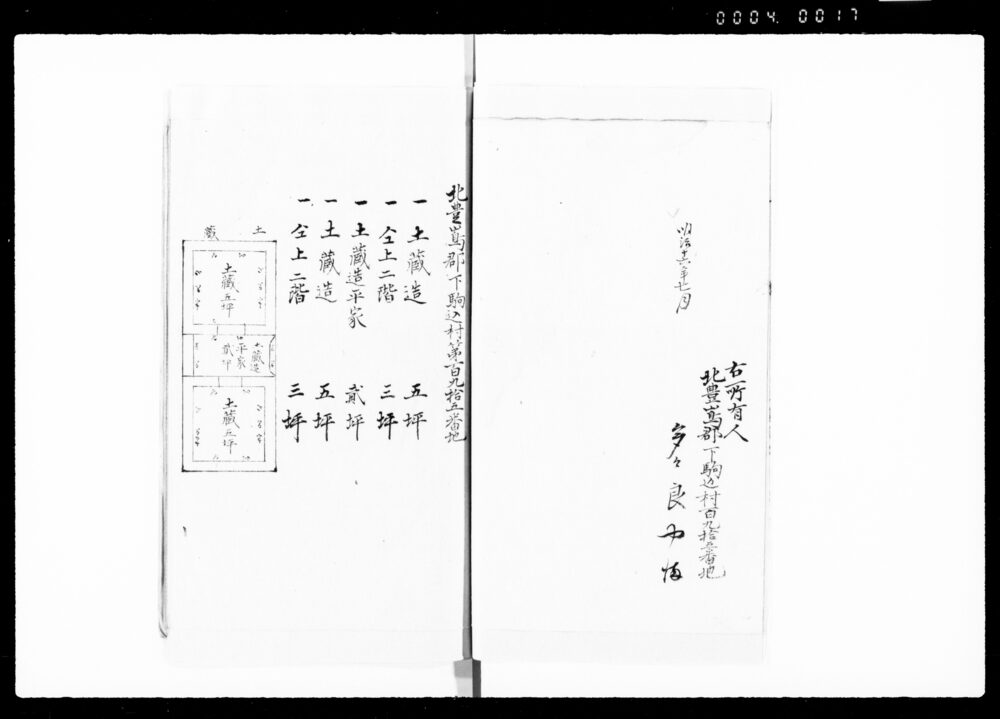 0004.0017
右所有人
北豊嶌郡下駒込村百九拾五番地
多々良
明治十六年十一月
北豊嶌郡下駒込村第百九拾五番地
一土藏造 五坪
一仝上二階 三坪
一土藏造平家 貳坪
一土藏造 五坪
一仝上二階 三坪
土藏
土藏五坪
土藏造
平家
貳坪
土藏五坪